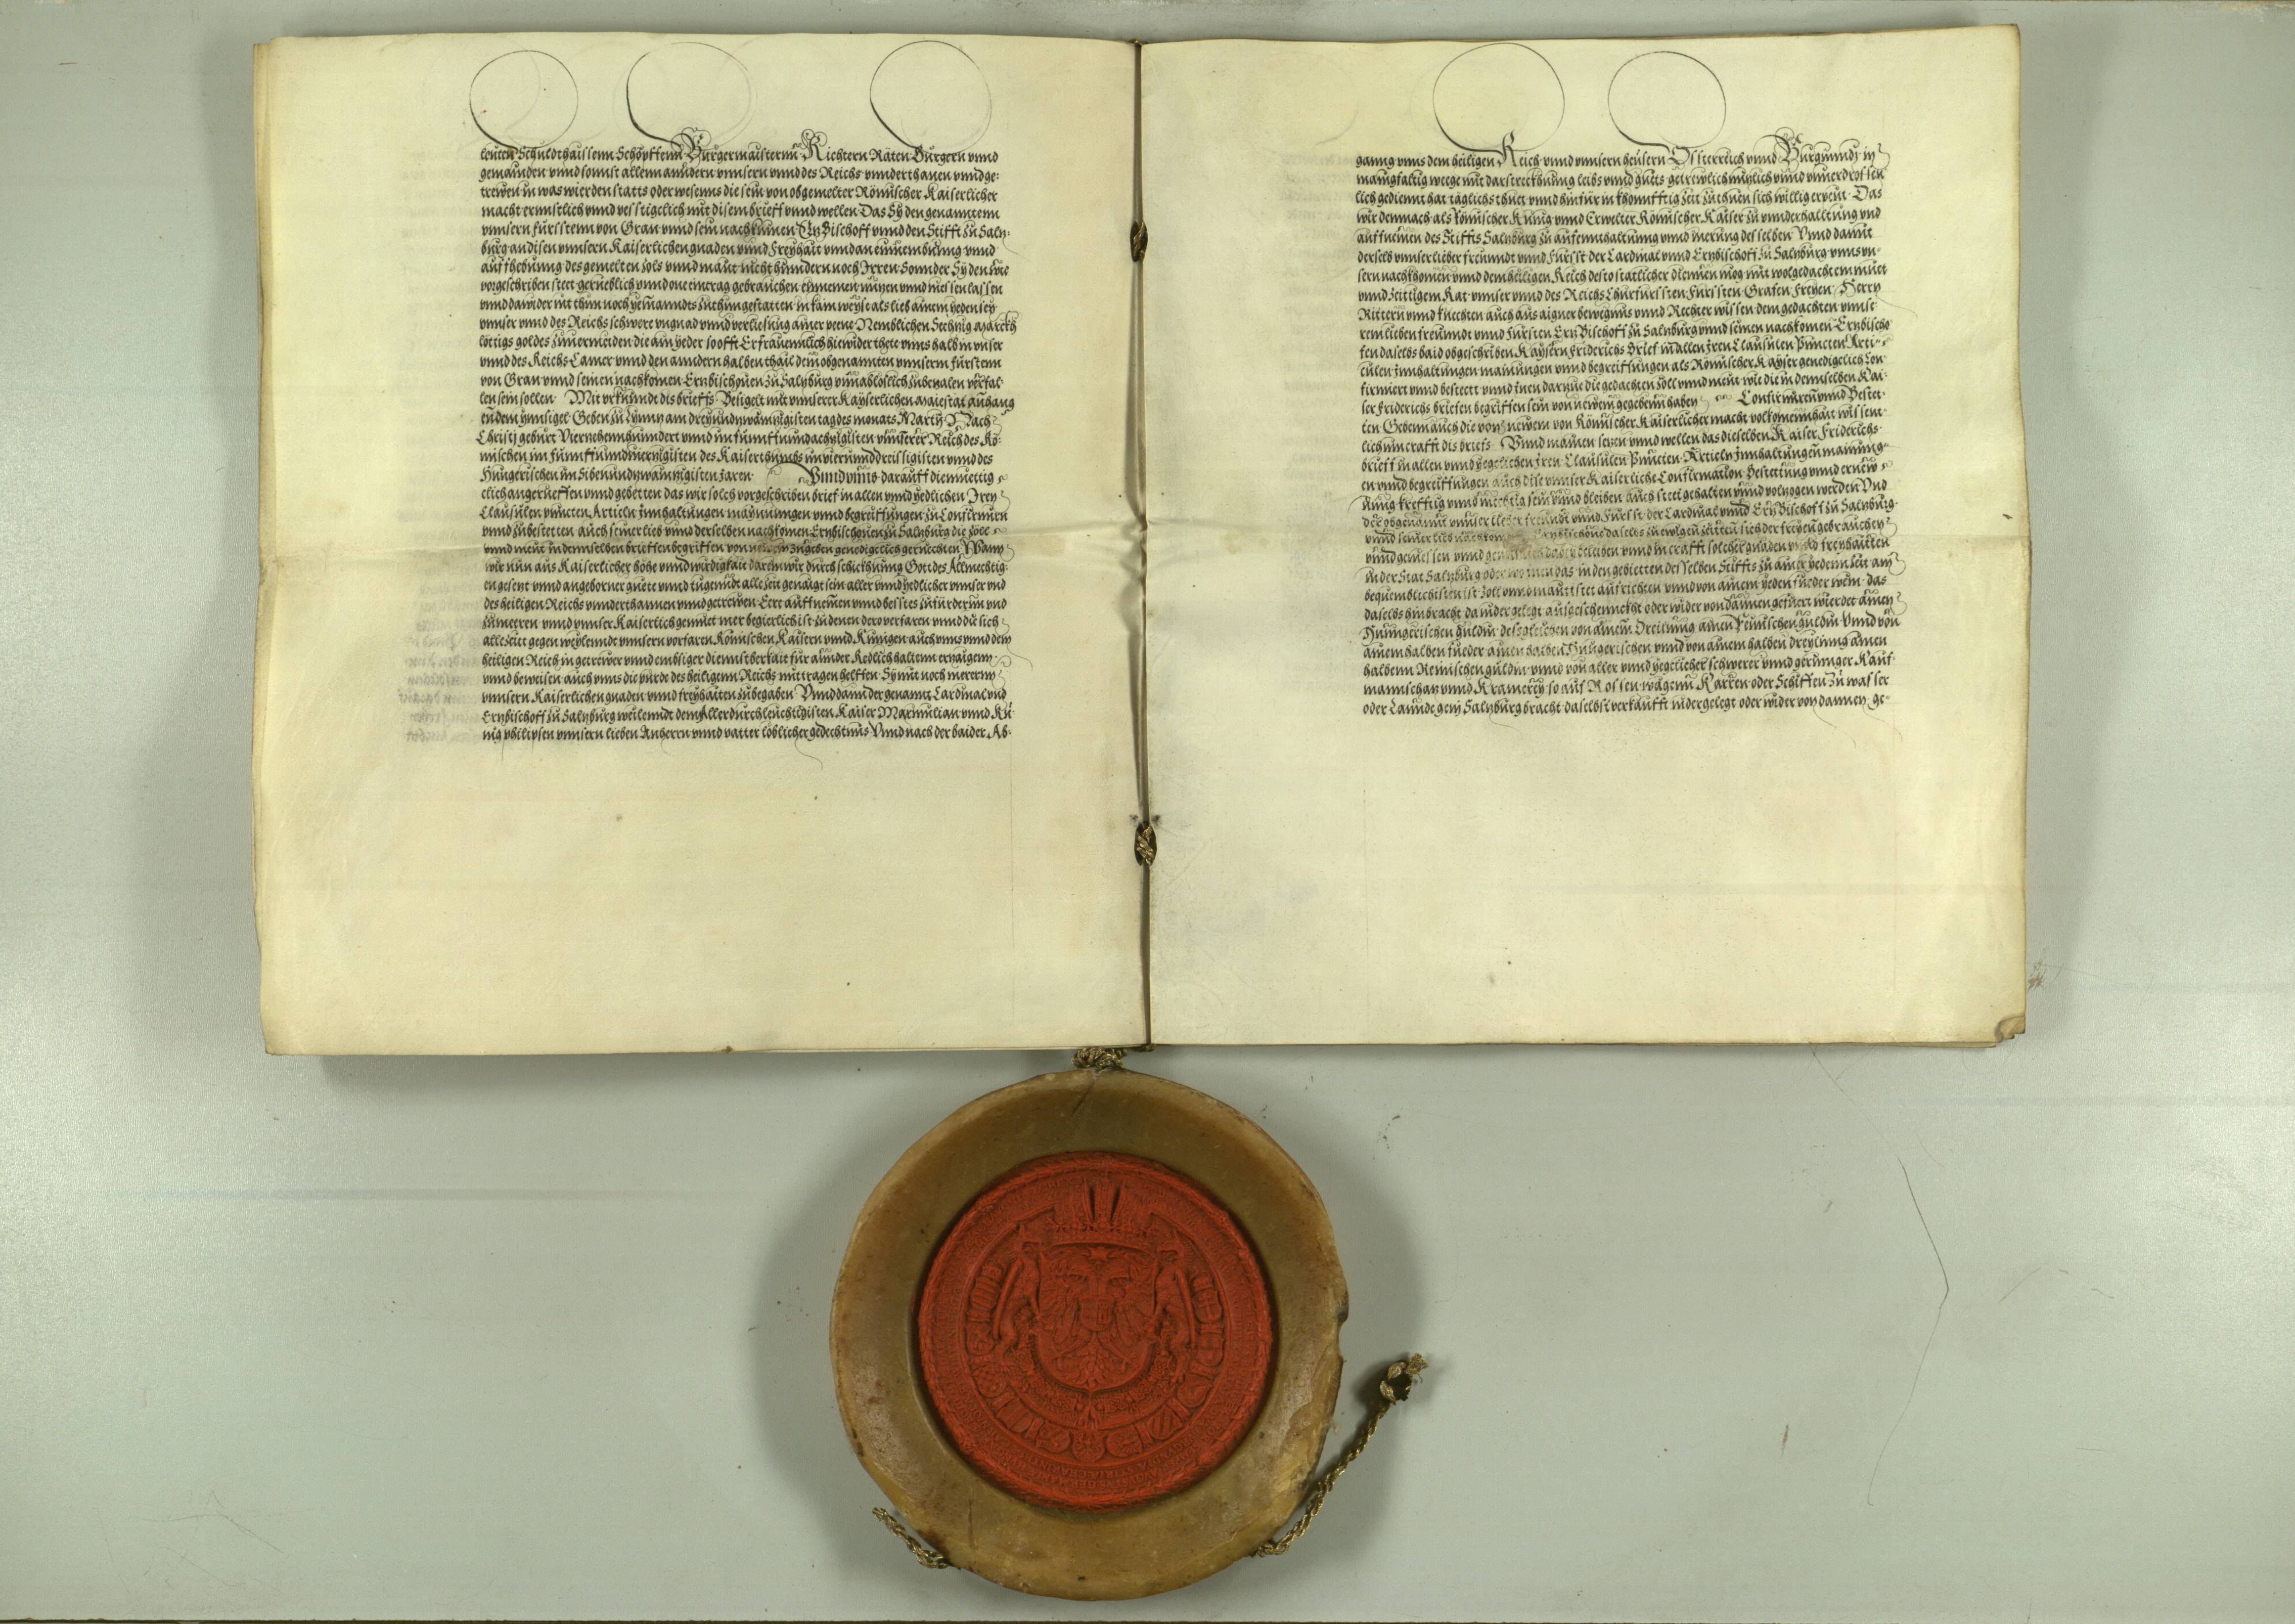 leuten Schuldthaissenn Schöpffenn Burgermaisternn Richtern Räten Burgern vnnd
gemainden vnnd sonnst allenn anndern vnnsern vnnd des Reichs vnnderthanen vnnd ge:
trewen in was wierden statts oder wesenns die sein von obgemelter Römischer Kaiserlicher
macht ernnstlich vnnd vesstigelich mit disem brieff vnnd wellen Das Sy den genanntenn
vnnsern Fürsstenn von Gran vnnd sein nachkumen Ertzbischoff vnnd den Stifft zu Saltz:
burg an disen vnnsern Kaiserlichen gnaden vnnd Freyhait vnnd an einnembung vnnd
auffhebung des gemelten zols vnnd maut nicht hinndern noch Irren Sonnder Sy den wie
vorgeschriben steet gerueblich vnnd one eintrag gebrauchen einnemen nützen vnnd niessen lassen
vnnd dawider nit thun noch yemanndts zuthun gestatten in kain weyse als lieb ainem yeden sey
vnnser vnnd des Reichs schwere vngnad vnnd verliesung ainer peene Nemblichen Sechtzig Marckh
löttigs goldes zuuermeiden die ain yeder so offt Er frauennlich hiewider thete vnns halb in vnser
vnnd des Reichs Camer vnnd den anndern halben thail dem obgenannten vnnserm fürstenn
von Gran vnnd seinen nachkomen Ertzbischouen zu Saltzburg vnnabloslich zubetzalen verfal:
len sein sollen Mit vrkunnde dis brieffs Besigelt mit vnnserer Kayserlichen Maiestat anhang
endem ynnsigel Geben zu Lynntz am dreyundzwaintzigisten tag des monats Martij Nach
Christj geburt Viertzehennhundert vnnd im funnffunndachtzigisten vnnserer Reich des Rö:
mischen im funnffunndviertzigisten des Kaiserthumbs im vierunnddreissigisten vnnd des
Hungerischen im Sibenundzwaintzigisten Jaren Vnnd vnns darauff diemuettig
clich angerueffen vnnd gebetten das wir solch vorgeschriben brief in allen vnnd yedlichen Iren
Clausulen puncten Articln Innhaltungen maynungen vnnd begreiffungen zu Confirmirn
vnnd zubestetten auch seiner lieb vnnd derselben nachkomen Ertzbischouen zu Saltzburg die zöll
vnnd meut in dennselben brieffen begriffen von newem zugeben genedigelich geruechten Wann
wir nun aus Kaiserlicher höhe vnnd wirdigkait darein wir durch schickhung Got des Allmechtig:
en gesetzt vnnd angeborner guete vnnd tugenndt alle zeit genaigt sein aller vnnd yedlicher vnnser vnd
des heiligen Reichs vnnderthannen vnnd getrewen Eere auffnemen vnnd besstes zufurderin vnd
zumeeren vnnd vnnser Kaiserlich gemuet mer begierlich ist zu denen dero vorfaren vnnd die sich
alle zeit gegen weylenndt vnnsern vorfaren Römischen Kaisern vnnd Kunigen auch vnns vnnd dem
heiligen Reich in getrewer vnnd embsiger diennstberkait für annder Redlich haltenn ertzaigenn
vnnd beweisen auch vnns die pürde des heiligenn Reichs mittragen helffen Sy mit noch merernn
vnnsern Kaiserlichen gnaden vnnd freyhaiten zubegaben Vnnd dann der genannt Cardinal vnd
Ertzbischoff zu Saltzburg weilenndt dem Allerdurchleuchtigisten Kaiser Maximilian vnnd Kü
nig philipsen vnnsern lieben Anherrn vnnd vatter löblicher gedechtnus Vnnd nach der baider Ab:
ganng vnns dem heiligen Reich vnnd vnnsern heusern Ossterreich vnnd Burgunndj in
manigfaltig weege mit darstreckhung leibs vnnd guts getrewlich nützlich vnnd vnuerdrossen
lich gedient hat täglichs thuet vnnd hinfür in khonnfftig zeit zuthuen sich willig erbeut Das
wir demnach als Römischer Kunig vnnd Erwelter Römischer Kaiser zu vnnderhalltung vnd
auffnemen des Stiffts Saltzburg zu aufennthalltung vnnd merung desselben Vnnd damit
derselb vnnser lieber freunndt vnnd Fürsst der Cardinal vnnd Ertzbischoff zu Saltzburg vnns vn:
sern nachkhomen vnnd dem heiligen Reich desto statlicher diennen mög mit wolgedachtem muet
vnnd zeittigem Rat vnnser vnnd des Reichs Churfürssten Fürssten Grafen Freyen Herrn
Rittern vnnd knechten auch aus aigner bewegnus vnnd Rechter wissen dem gedachten vnnse
rem lieben freunndt vnnd Fürsten Ertzbischoff zu Saltzburg vnnd seinen nachkomen Ertzbischo
fen daselbs baid obgeschriben Kaysern Friderichs Brief in allen Iren Clausulen Puncten Arti
culen Innhaltungen mainungen vnnd begreiffungen als Römischer Kayser genedigelich Con
firmiert vnnd besteett vnnd Inen darzue die gedachten zöll vnnd meut wie die in dennselben Kai:
ser Friderichs briefen begriffen sein von newem gegebenn haben Confirmiren vnnd Bestet
ten Geben auch die von newem von Römischer Kaiserlicher macht volkomennhait wissent:
lich in crafft dis briefs Vnnd mainen setzen vnnd wellen das dieselben Kaiser Friderichs
brieff in allen vnnd yegclichen Iren Clausulen Puncten Articln Innhaltungen mainung
en vnnd begreiffungen auch dise vnnser Kaiserliche Confirmation Bestettung vnnd ernew
ung krefftig vnnd mechtig sein vnnd bleiben auch stett gehalten vnnd volzogen werden Vnd
der obgenannt vnnser lieber freundt vnnd Fürsst der Cardinal vnnd Ertzbischoff zu Saltzburg
vnnd seiner lieb nachkomen Ertzbischoue daselbs zu ewigen zeitten sich der freyen gebrauchen
vnnd geniessen vnnd dabey beleiben vnnd in crafft solcher gnaden vnnd freyhaitten
in der Stat Saltzburg oder wo inen das in den gebietten desselben Stiffts zu ainer yedenn zeit am
bequemblichisten ist zoll vnnd maut stet aufrichten vnnd von ainem yeden fueder wein das
daselbs hinbracht da nidergelegt ausgeschennckht oder wider von dannen gefuert wierdet ainen
Hunngerischen guldin desgleichen von ainem Dreiling ainen Reinischen guldin Vnnd von
ainem halben fueder ainen halben Hungerischen vnnd von ainem halben dreyling ainen
halbenn Reinischen guldin vnnd von aller vnnd yegclicher schwerer vnnd geringer Kauf
manschatz vnnd Kramerey so auf Rossen wägenn Karren oder Schiffen zu wasser
oder Lannde gein Saltzburg bracht daselbst verkaufft nidergelegt oder wider von dannen ge